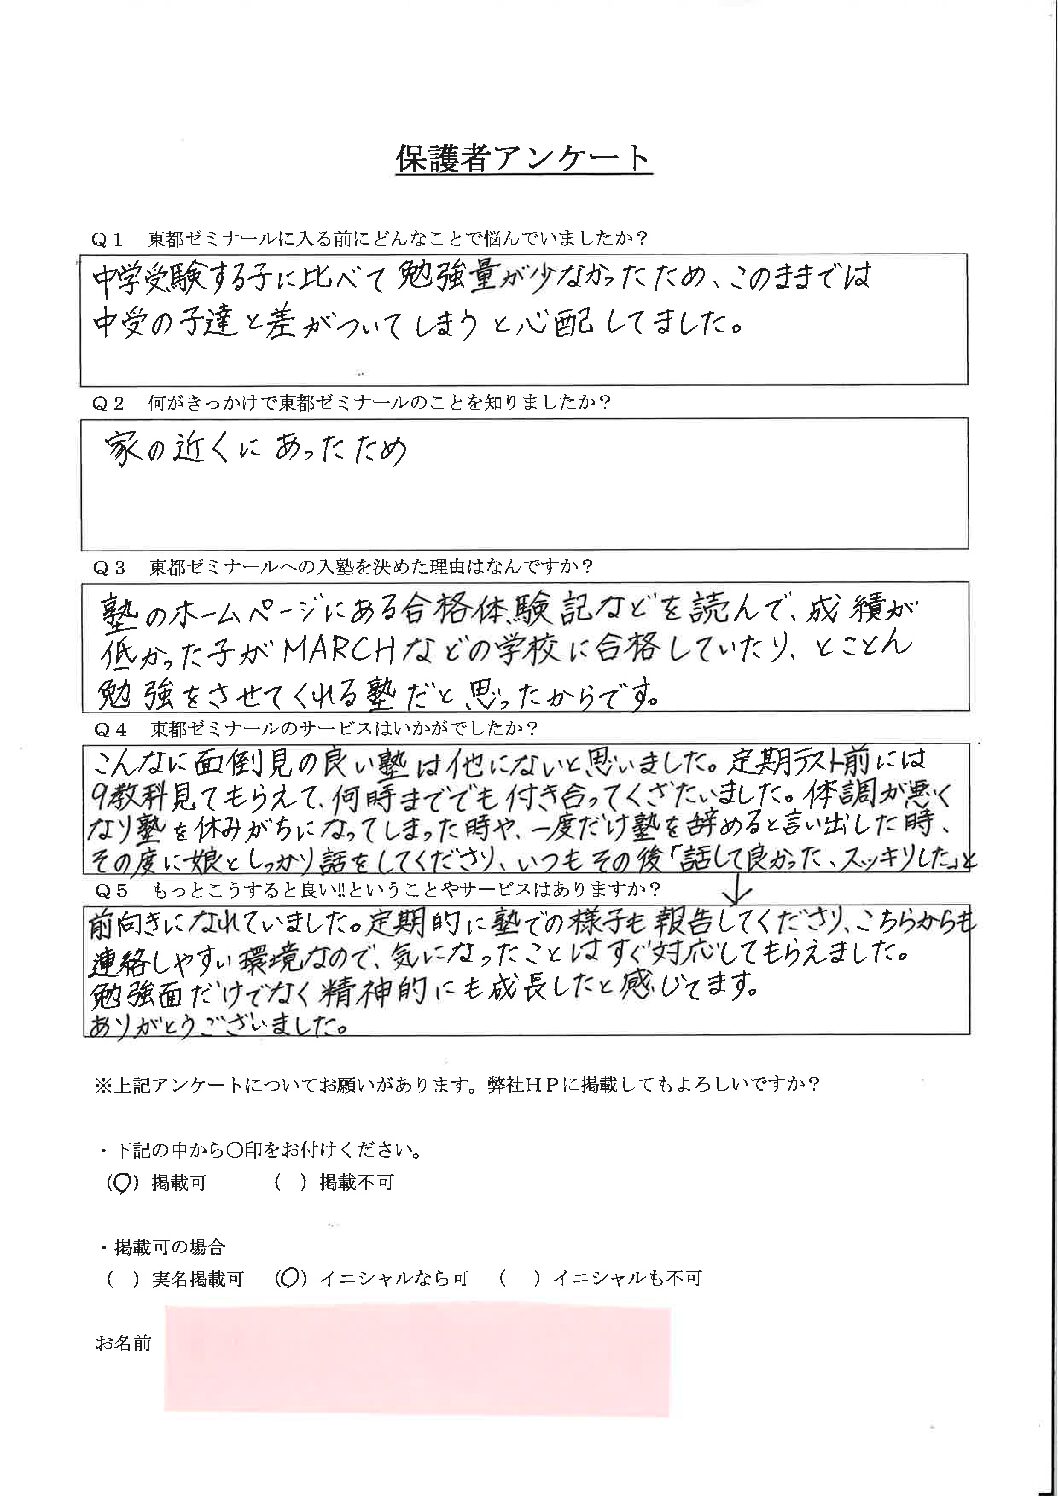 保護者アンケート
Q1 東都ゼミナールに入る前にどんなことで悩んでいましたか?
中学受験する子に比べて勉強量が少なかったため、このままでは
中受の子達と差がついてしまうと心配してました。
Q2 何がきっかけで東都ゼミナールのことを知りましたか?
家の近くにあったため
Q3 東都ゼミナールへの入塾を決めた理由はなんですか?
塾のホームページにある合格体験記などを読んで、成績が
低かった子がMARCHなどの学校に合格していたり、とことん
勉強をさせてくれる塾だと思ったからです。
Q4 東都ゼミナールのサービスはいかがでしたか?
こんなに面倒見の良い塾は他にないと思いました。定期テスト前には
9教科見てもらえて、何時まででも付き合ってくださいました。体調が悪く
なり塾を休みがちになってしまった時や、一度だけ塾を辞めると言い出した時、
その度に娘としっかり話をしてくださり、いつもその後「話して良かった、スッキリした」と
Q5 もっとこうすると良い!!ということやサービスはありますか? ↓
前向きになれていました。定期的に塾での様子も報告してくださり、こちらからも
連絡しやすい環境なので、気になったことはすぐ対応してもらえました。
勉強面だけでなく精神的にも成長したと感じてます。
ありがとうございました。
※上記アンケートについてお願いがあります。弊社HPに掲載してもよろしいですか?
・下記の中から〇印をお付けください。
(〇) 掲載可 ( ) 掲載不可
・掲載可の場合
( ) 実名掲載可 (〇) イニシャルなら可 ( ) イニシャルも不可
お名前